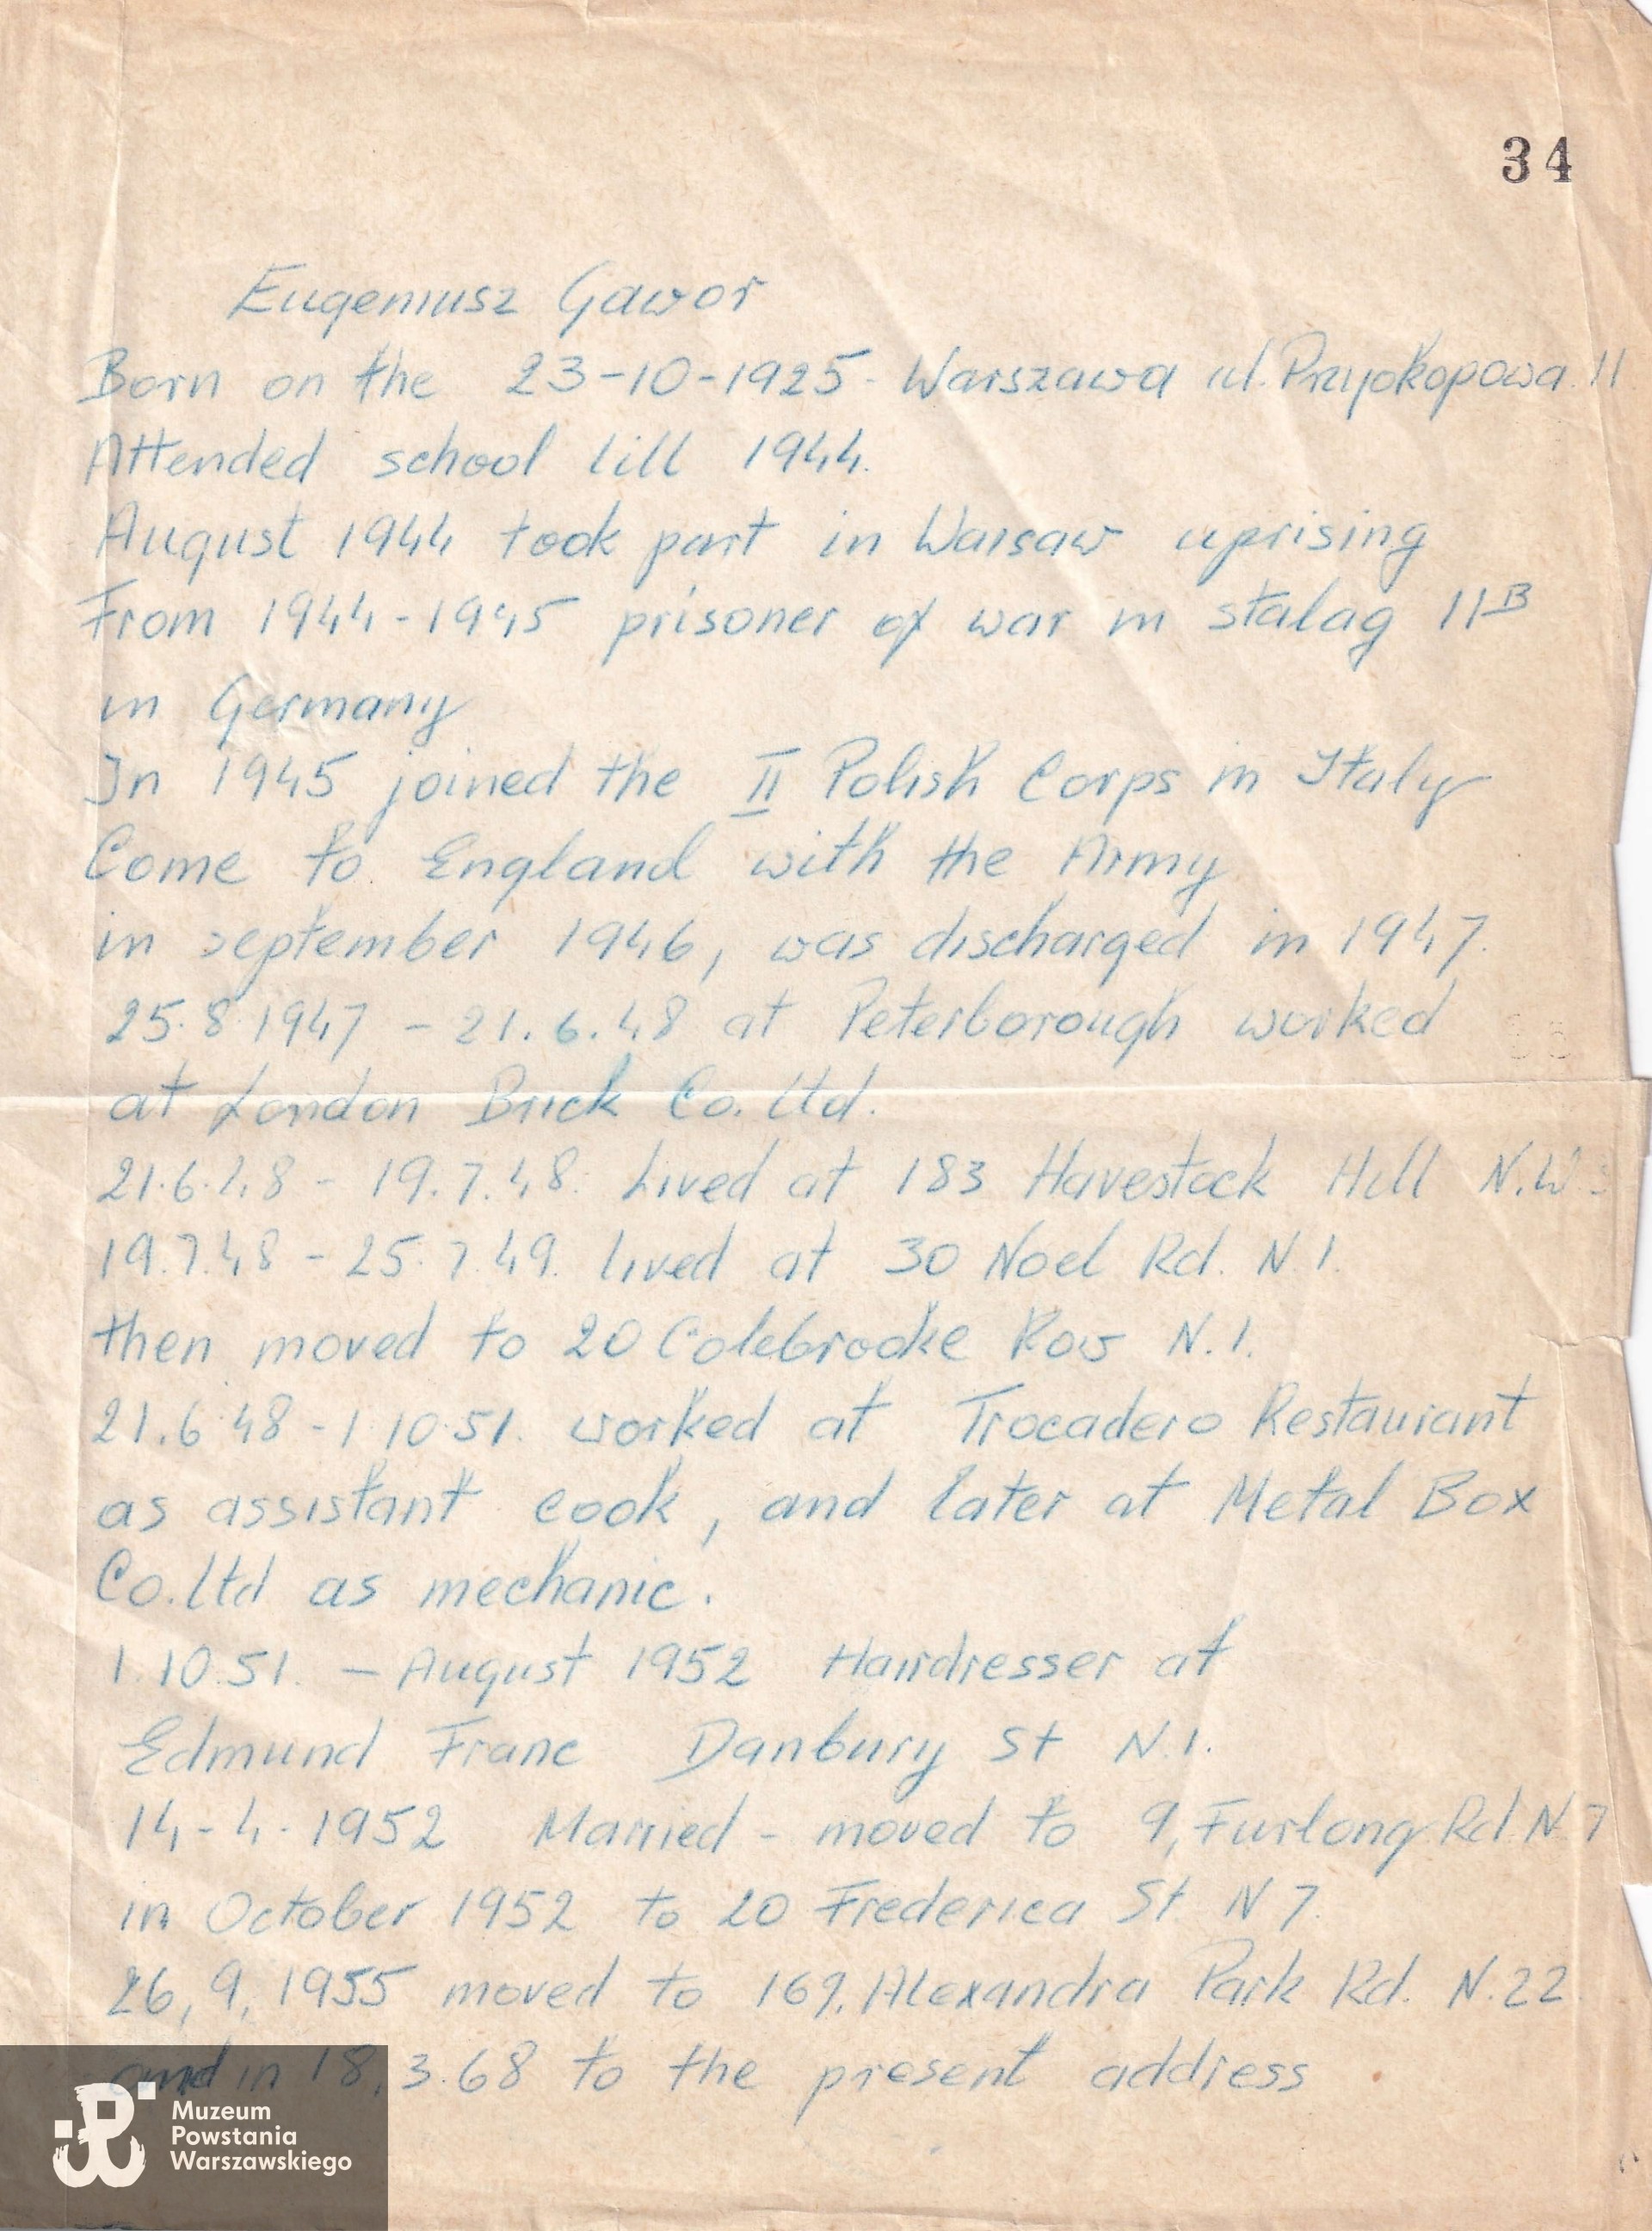 34
Eugeniusz Gawor
Born on the 23-10-1925- Warszawa ul. Przyokopowa 11
Attended school till 1944.
August 1944 took part in Warsaw uprising
From 1944-1945 prisoner of war in stalag 11B
in Germany
In 1945 joined the II Polish Corps in Italy
Come to England with the Army
in september 1946, was discharged in 1947.
25.8.1947 - 21.6.48 at Peterborough worked
at London Brick Co. Ltd.
21.6.48 - 19.7.48. Lived at 183 Havestock Hill N.W.
19.7.48 - 25.7.49. lived at 30 Noel Rd. N.1.
then moved to 20 Colebrooke Row N.1.
21.6.48 - 1.10.51. worked at Trocadero Restaurant
as assistant cook, and later at Metal Box
Co. Ltd as mechanic.
1.10.51. - August 1952 Hairdresser at
Edmund Franc Danbury St N.1.
14-4-1952 Married - moved to 9, Furlong Rd N 7
in October 1952 to 20 Frederica St. N 7.
26,9,1955 moved to 169, Alexandra Park Rd. N.22
and in 18,3.68 to the present address
Muzeum
Powstania
Warszawskiego